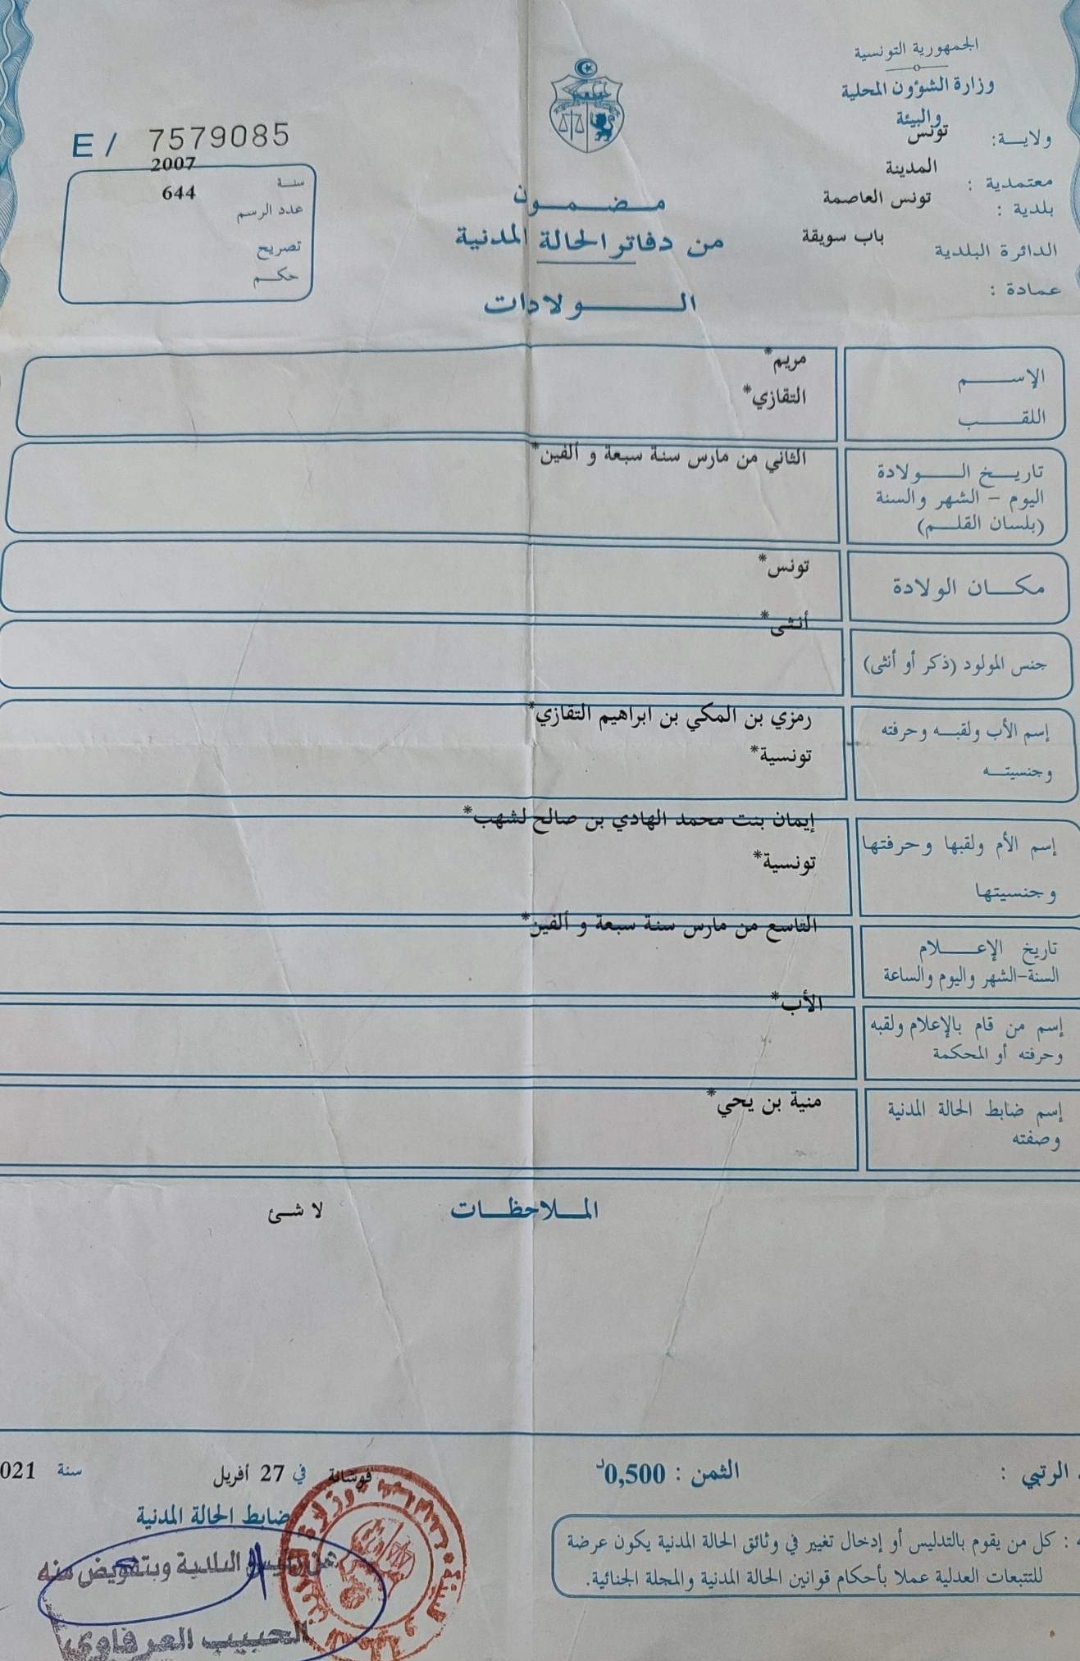 الجمهورية التونسية
وزارة الشؤون المحلية
والبيئة
ولاية: تونس
معتمدية : المدينة
بلدية : تونس العاصمة
الدائرة البلدية باب سويقة
عمادة :
E / 7579085
سنة 2007
عدد الرسم 644
تصريح
حكم
مضمون
من دفاتر الحالة المدنية
الولادات
الإسم مريم*
اللقب التقازي*
تاريخ الولادة الثاني من مارس سنة سبعة و ألفين*
اليوم - الشهر والسنة
(بلسان القلم)
مكان الولادة تونس*
جنس المولود (ذكر أو أنثى) أنثى*
إسم الأب ولقبه وحرفته رمزي بن المكي بن ابراهيم التقازي*
وجنسيته تونسية*
إسم الأم ولقبها وحرفتها إيمان بنت محمد الهادي بن صالح لشهب*
وجنسيتها تونسية*
تاريخ الإعلام التاسع من مارس سنة سبعة و ألفين*
السنة-الشهر واليوم والساعة
إسم من قام بالإعلام ولقبه الأب*
وحرفته أو المحكمة
إسم ضابط الحالة المدنية منية بن يحي*
وصفته
الملاحظات لا شئ
الرتبي :
الثمن : 0,500د
فوسانة في 27 أفريل سنة 021
ضابط الحالة المدنية
عن رئيس البلدية وبتفويض منه
الحبيب العرفاوي
: كل من يقوم بالتدليس أو إدخال تغيير في وثائق الحالة المدنية يكون عرضة
للتتبعات العدلية عملا بأحكام قوانين الحالة المدنية والمجلة الجنائية.